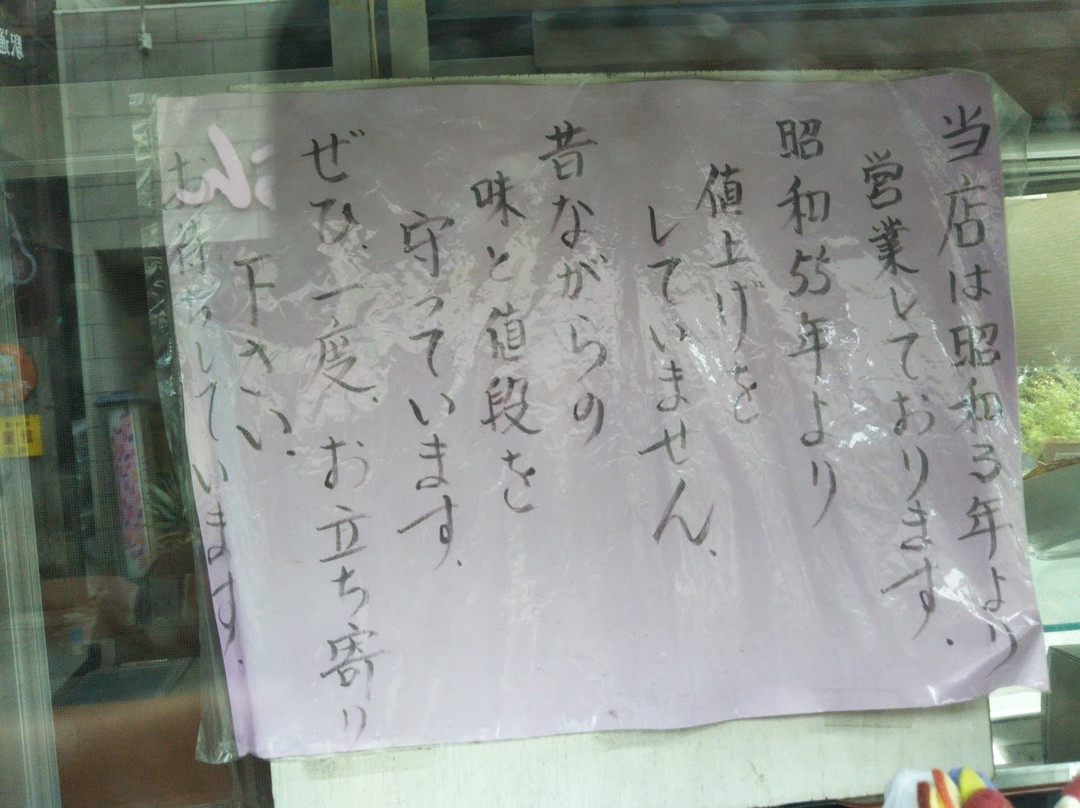 当店は昭和3年より
営業しております.
昭和55年より
値上げを
していません.
昔ながらの
味と値段を
守っています.
ぜひ、一度、お立ち寄り
下さい.
お待ちしています.